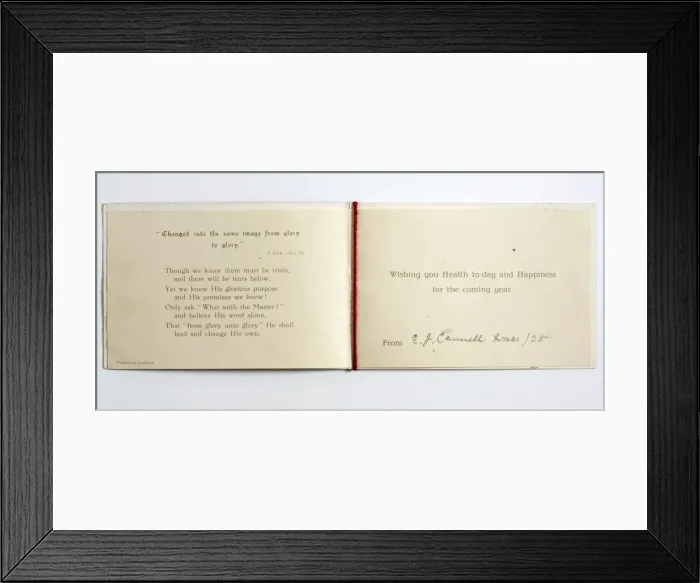 "Changed into the same image from glory
to glory."
Though we know there must be trials,
and there will be tears below,
Yet we know His glorious purpose
and His promises we know!
Only ask "What saith the Master?"
and believe His word alone,
That "from glory unto glory" He shall
lead and change His own.
Wishing you Health to-day and Happiness
for the coming year.
From E. J. Xmas